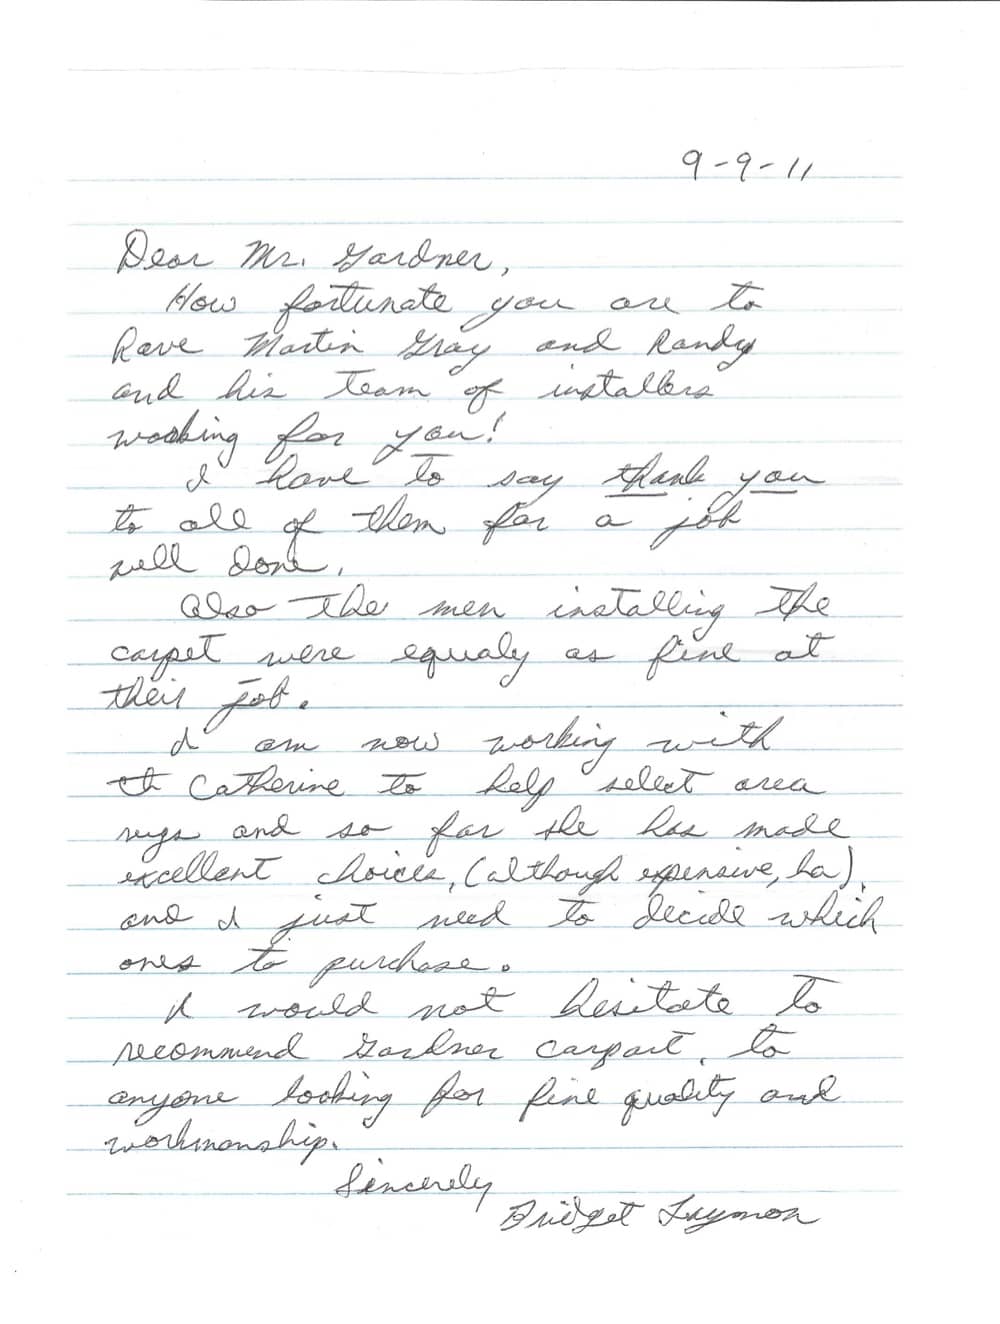 9-9-11
Dear Mr. Gardner,
How fortunate you are to
have Martin Gray and Randy
and his team of installers
working for you!
I have to say thank you
to all of them for a job
well done.
Also the men installing the
carpet were equaly as fine at
their job.
I am now working with
Catherine to help select area
rugs and so far she has made
excellent choices, (although expensive, ha),
and I just need to decide which
ones to purchase.
I would not hesitate to
recommend Gardner carpart, to
anyone looking for fine quality and
workmanship.
Sincerely
Bridget